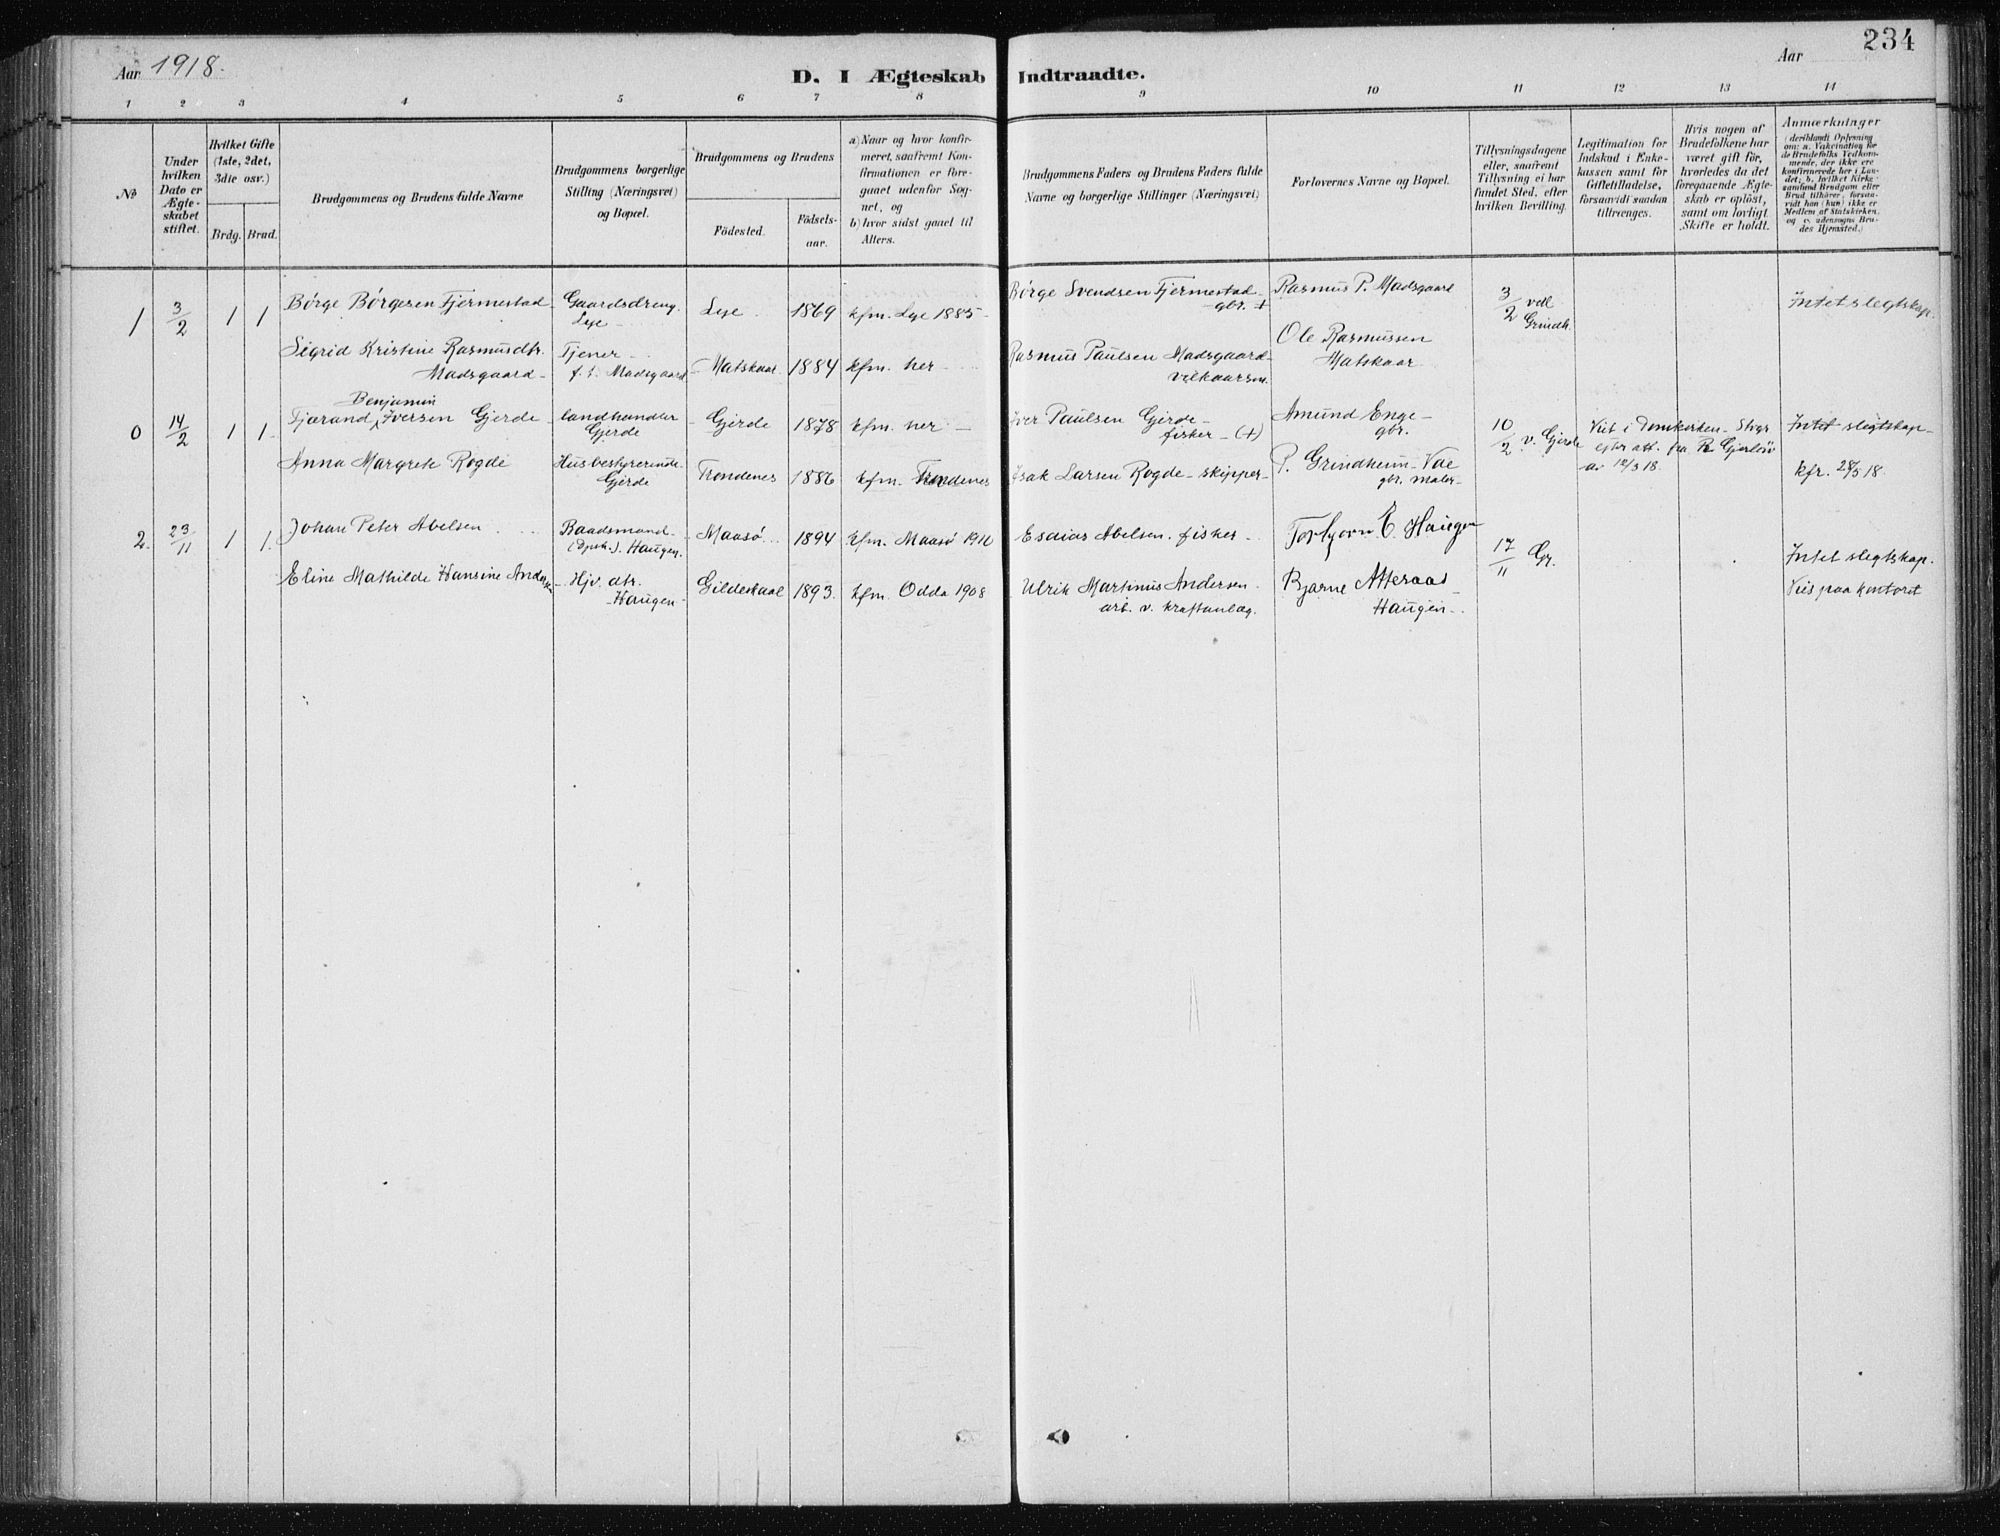 234
Aar 1918.
D. I Ægteskab Indtraadte.
Aar
1 2 3 4 5 6 7 8 9 10 11 12 13 14
No
Under
hvilken
Dato er
Ægte-
skabet
stiftet.
Hvilket Gifte
(1ste, 2det,
3die osv.)
Brdg. Brud.
Brudgommens og Brudens fulde Navne
Brudgommens borgerlige
Stilling (Næringsvei)
og Bopæl.
Brudgommens og Brudens
Födested.
Födsels-
aar.
a) Naar og hvor konfir-
meret, saafremt Kon-
firmationen er fore-
gaaet udenfor Sog-
net, og
b) hvor sidst gaaet til
Alters.
Brudgommens Faders og Brudens Faders fulde
Navne og borgerlige Stillinger (Næringsvei)
Forlovernes Navne og Bopæl.
Tillysningsdagene
eller, saafremt
Tillysning ei har
fundet Sted, efter
hvilken Bevilling.
Legitimation for
Indskud i Enke-
kassen samt for
Giftetilladelse,
forsaavidt saadan
tiltrænges.
Hvis nogen af
Brudefolkene har
været gift för,
hvorledes da det
foregaaende Ægte-
skab er oplöst,
samt om lovligt
Skifte er holdt.
Anmærkninger
(deriblandt Oplysning
om: a. Vakcination for
de Brudefolks Vedkom-
mende, der ikke ere
konfirmerede her i Lan-
det, b. hvilket Kirke-
samfund Brudgom eller
Brud tilhører, forsaa-
vidt han (hun) ikke er
Medlem af Statskirken,
og c. udensogns Bru-
des Hjemsted.)
1 3/2 1 1 Börge Börgesen Fjermestad Gaardsdreng Lye 1869 kfm. Lye 1885 Börge Svendsen Fjermestad Rasmus P. Madsgaard 3/2 ved Intet slegtskap.
Lye gbr. + Grindh.
Sigrid Kristine Rasmusdtr. Tjener Matskaar 1884 kfm. her Rasmus Paulsen Madsgaard Ole Rasmussen
Madsgaard f. t. Madsgaard vilkaarsm. Matskaar
Benjamin
0 14/2 1 1 Tjørand Iversen Gjerde landhandler Gjerde 1878 kfm. her Iver Paulsen Gjerde Amund Enge 10/2 v. Gjerde Viet i Domkirken Intet slegtskap
Gjerde fisker (+) gbr. efter att. fra
Anna Margrete Rogde Husbestyrerinde Trondenes 1886 kfm. Trondenes Isak Larsen Rogde skipper P. Grindheim av kfr. 28/5 18.
Gjerde gbr. maler
2. 23/11 1 1. Johan Peter Abelsen Baadsmand Maasø 1894 kfm. Maasø 1910 Esaias Abelsen. fisker Torbjørn E. Haugen 17/11 Gr. Intet slegtskap.
Haugen.
Eline Mathilde Hansine Andersen Hjv. dtr. Gildeskaal 1893. kfm. Odda 1908 Ulrik Martinus Andersen Bjarne Atteraas Vies paa kontoret
Haugen arb. v. kraftanlæg. Haugen